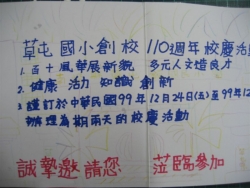 草屯國小創校110週年校慶活
1.百十風華展新貌 多元人文造良才
2.健康 活力 知識 創新
3.謹訂於中華民國99年12月24日(五)至99年12
辦理為期兩天的校慶活動
誠摯邀請您 蒞臨參加